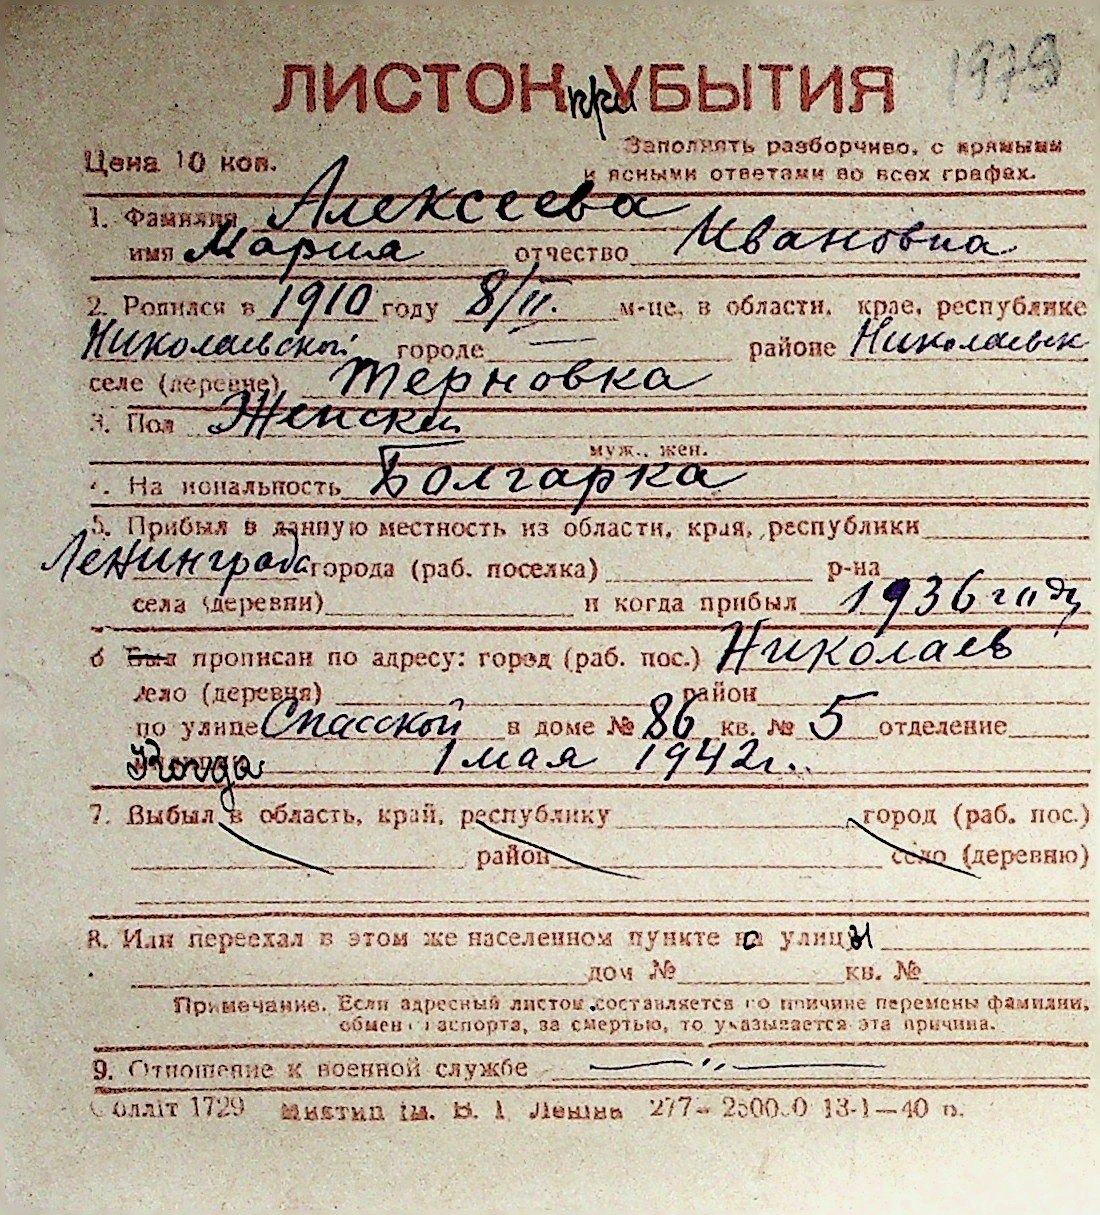 1979
ЛИСТОК при УБЫТИЯ
Цена 10 коп.
Заполнять разборчиво, с прямыми
и ясными ответами во всех графах.
1. Фамилия Алексеева
имя Мария отчество Ивановна
2. Родился в 1910 году 8/II. м-це, в области, крае, республике
Николаевской городе — районе Николаевск
селе (деревне) Терновка
3. Пол Женски
муж., жен.
4. На иональность Болгарка
5. Прибыл в данную местность из области, края, республики
Ленинграда города (раб. поселка) р-на
села (деревни) и когда прибыл 1936 году
6 Был прописан по адресу: город (раб. пос.) Николаев
село (деревня) район
по улице Спасской в доме № 86 кв. № 5 отделение
Когда 1 мая 1942 г.
7. Выбыл в область, край, республику город (раб. пос.)
район село (деревню)
8. Или переехал в этом же населенном пункте с улицы
дом № кв. №
Примечание. Если адресный листок составляется по причине перемены фамилии,
обмен паспорта, за смертью, то указывается эта причина.
9. Отношение к военной службе — „ —
Облліт 1729 Миктип ім. В. І. Леніна 277— 13-1—40 р.